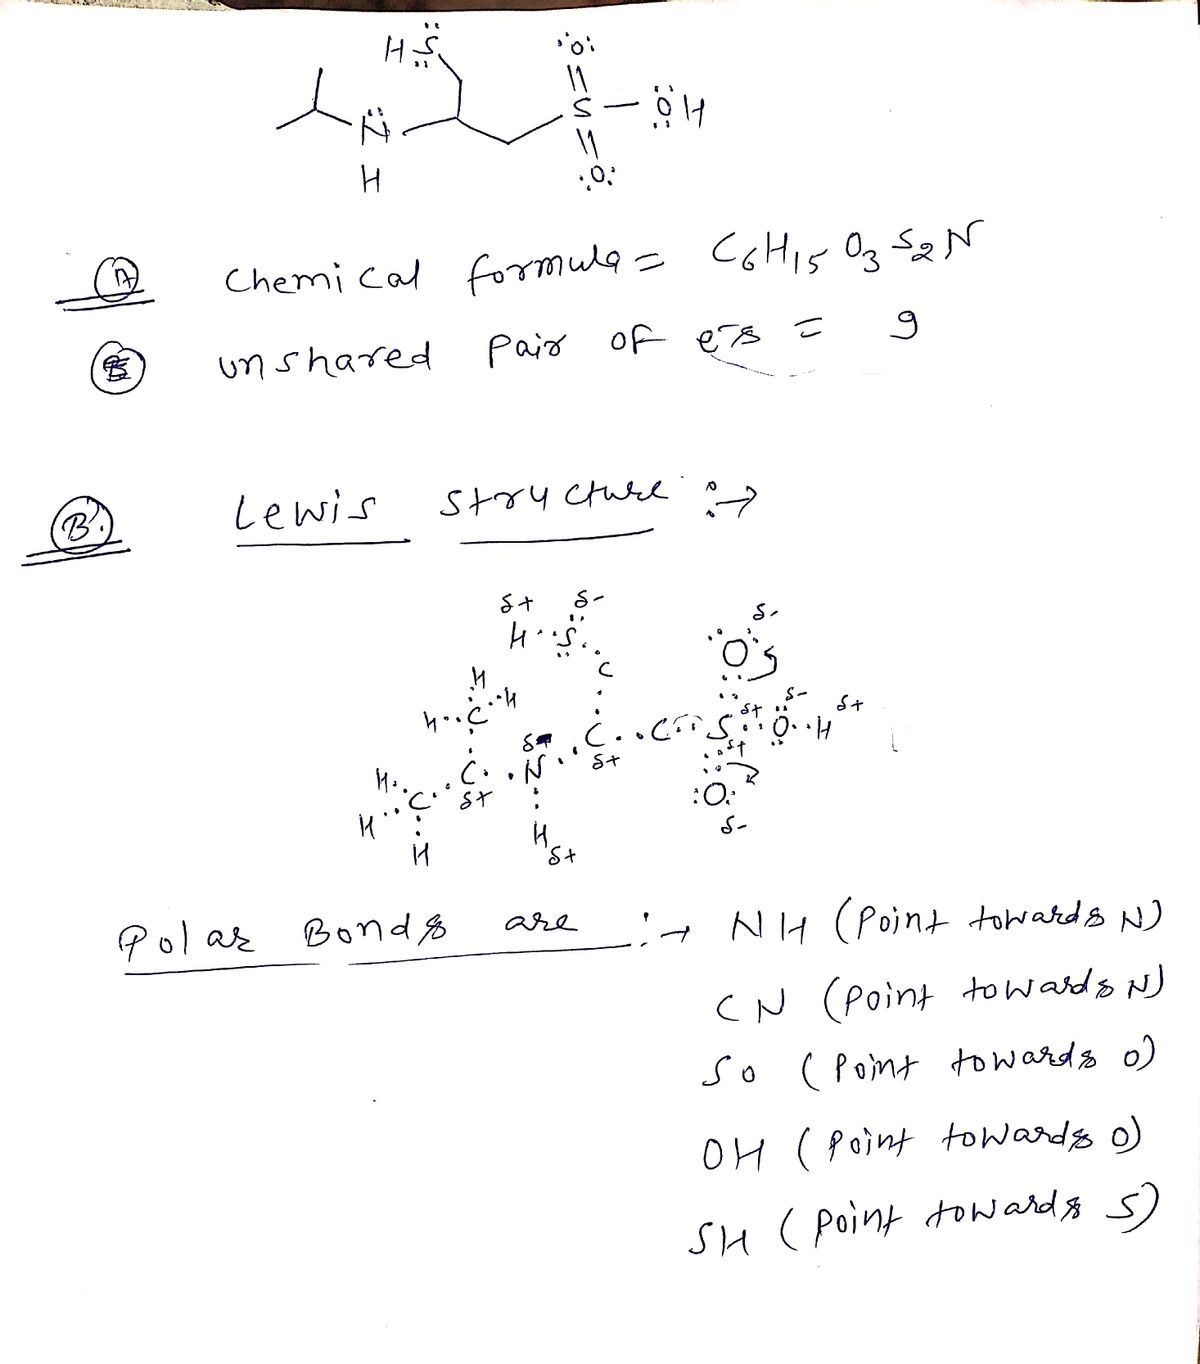 HS̈ :O:
|| 
S — ÖH
N̈ ||
H :O:
(A) Chemical formula = C6H15 O3 S2 N
unshared pair of e-s = 9
(B.) Lewis structure :→
δ+ δ- δ-
H : S O
H C
H : C : H δ- δ+
δ- C : C : S δ+ : O : H
H C : N δ+ δ+
H : C δ+ :O:
H H δ+ δ-
Polar Bonds are :→ NH (Point towards N)
CN (Point towards N)
SO (Point towards O)
OH (Point towards O)
SH (Point towards S)